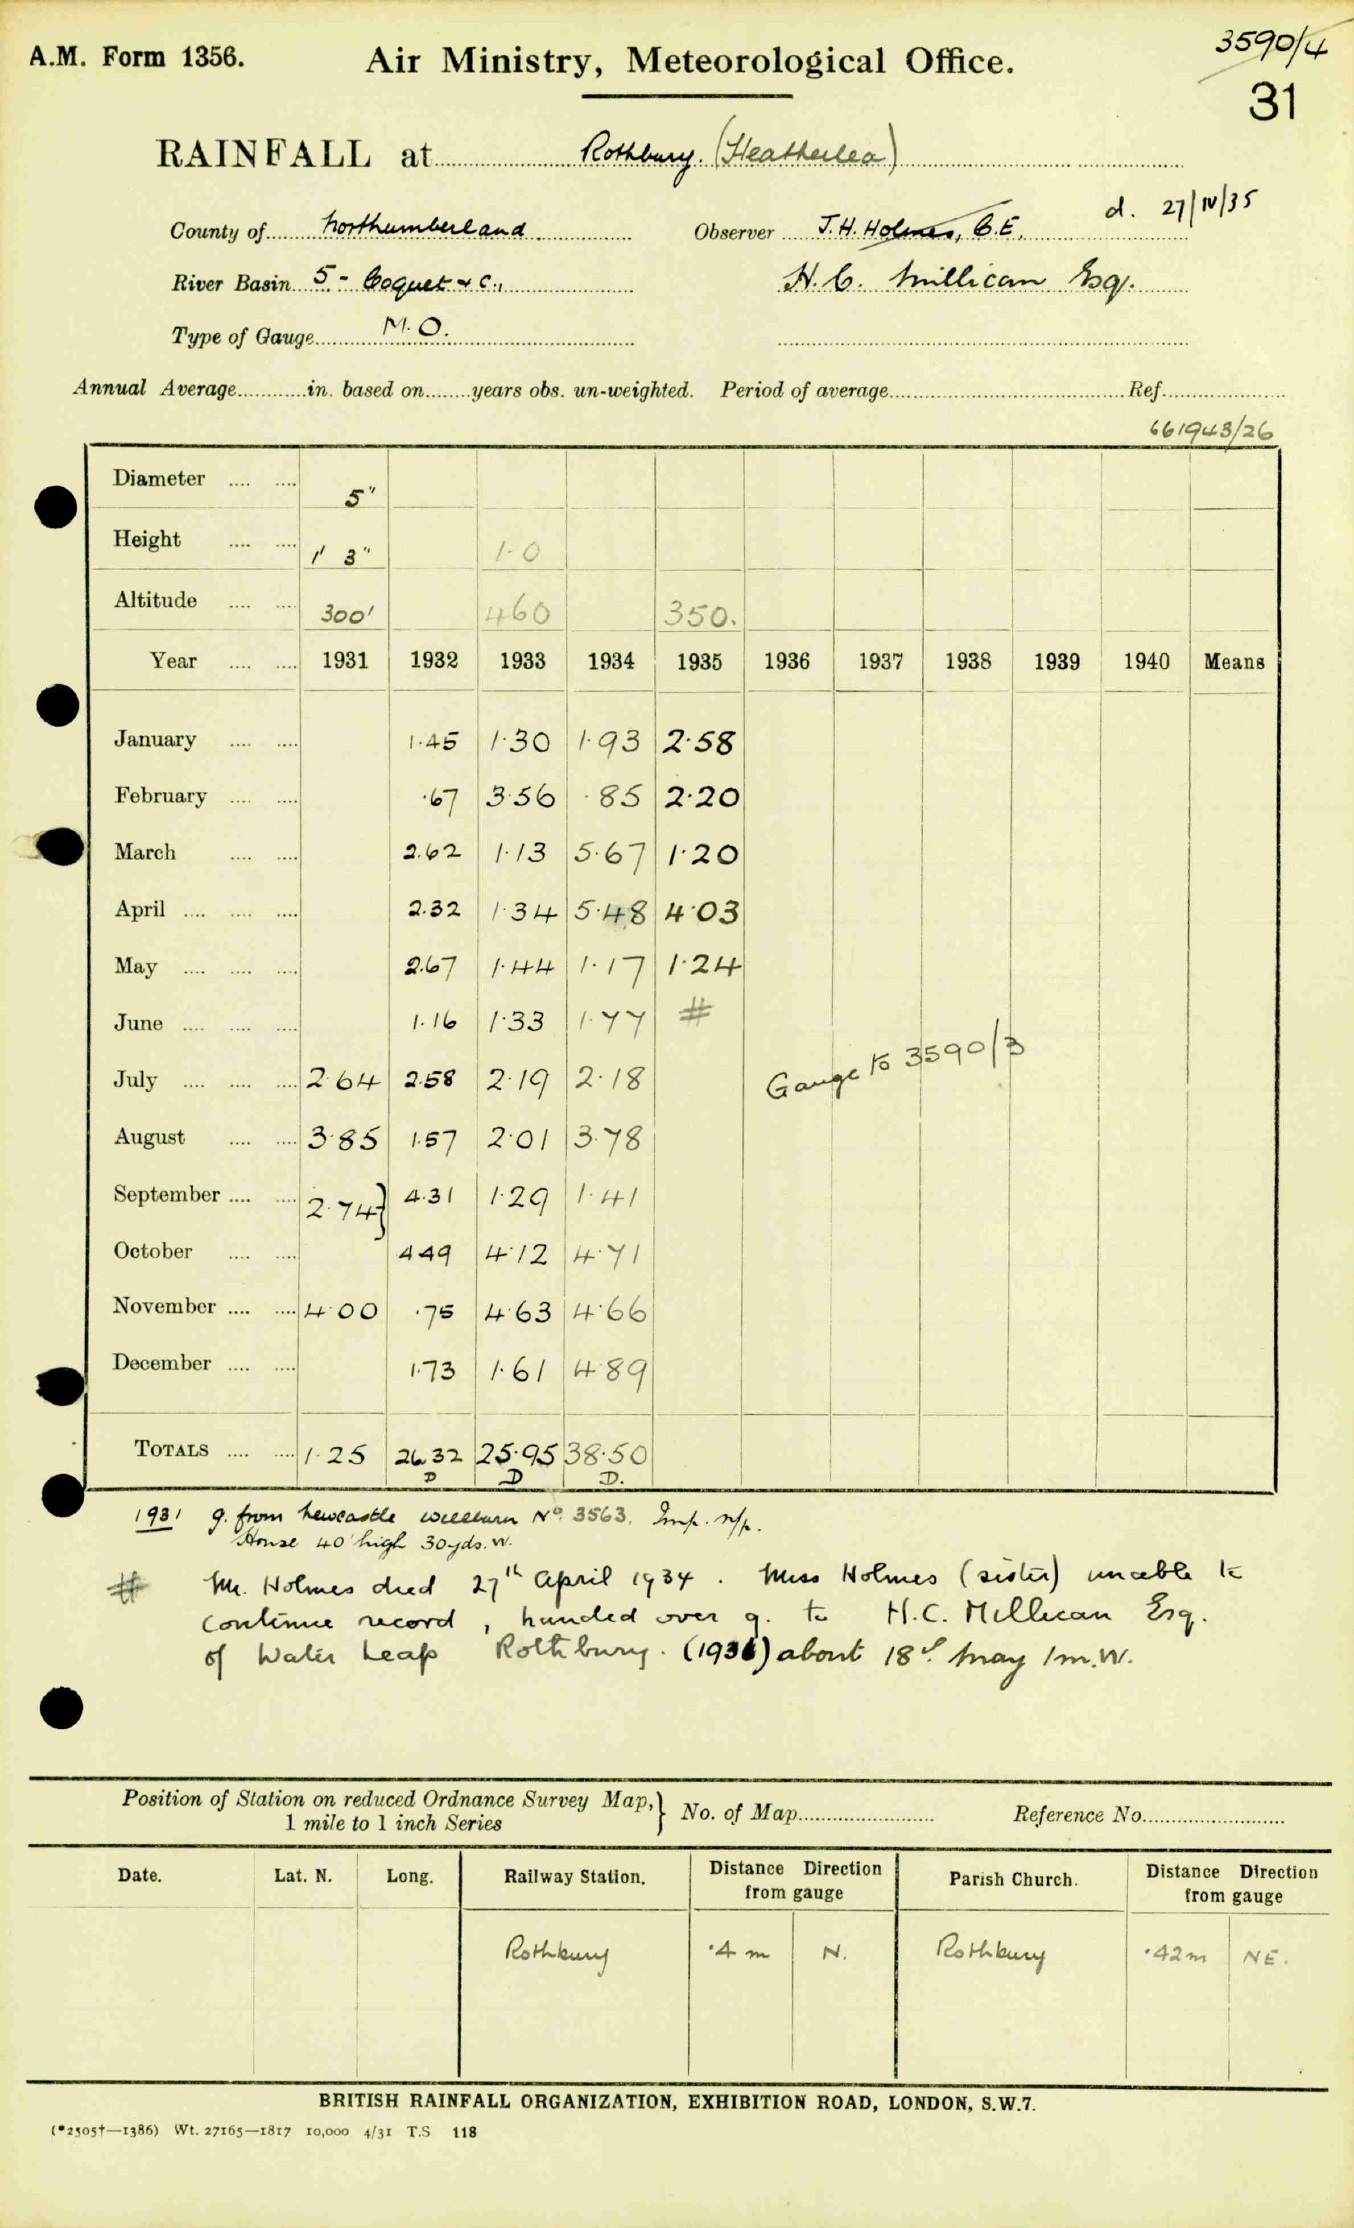 A.M. Form 1356. Air Ministry, Meteorological Office. 3590/4
31
RAINFALL at Rothbury. (Heatherlea)
County of Northumberland Observer J.H. Holmes, C.E. d. 27/IV/35
River Basin 5 - Coquet & c., H. C. Millican Esq.
Type of Gauge M.O.
Annual Average in. based on years obs. un-weighted. Period of average Ref.
661943/26
Diameter 5"
Height 1' 3" 1·0
Altitude 300' 460 350.
Year 1931 1932 1933 1934 1935 1936 1937 1938 1939 1940 Means
January 1·45 1·30 1·93 2·58
February ·67 3·56 ·85 2·20
March 2.62 1·13 5·67 1·20
April 2.32 1·34 5·48 4·03
May 2.67 1·44 1·17 1·24
June 1.16 1·33 1·77 #
July 2·64 2.58 2·19 2·18 Gauge to 3590/3
August 3·85 1.57 2·01 3·78
September 2·74} 4.31 1·29 1·41
October 4.49 4·12 4·71
November 4·00 ·75 4·63 4·66
December 1.73 1·61 4·89
TOTALS 1·25 26.32 25·95 38·50
D D D.
1931 g. from Newcastle No. 3563. Imp. n/p.
House 40' high 30yds. W.
# Mr. Holmes died 27th April 1934. Miss Holmes (sister) unable to
continue record, handed over g. to H.C. Millican Esq.
of Water Leap Rothbury. (1936) about 18th May 1m.W.
Position of Station on reduced Ordnance Survey Map,} No. of Map Reference No.
1 mile to 1 inch Series
Date. Lat. N. Long. Railway Station. Distance Direction Parish Church. Distance Direction
from gauge from gauge
Rothbury ·4 m N. Rothbury ·42m NE.
BRITISH RAINFALL ORGANIZATION, EXHIBITION ROAD, LONDON, S.W.7.
(*2505†—1386) Wt. 27165—1817 10,000 4/31 T.S 118